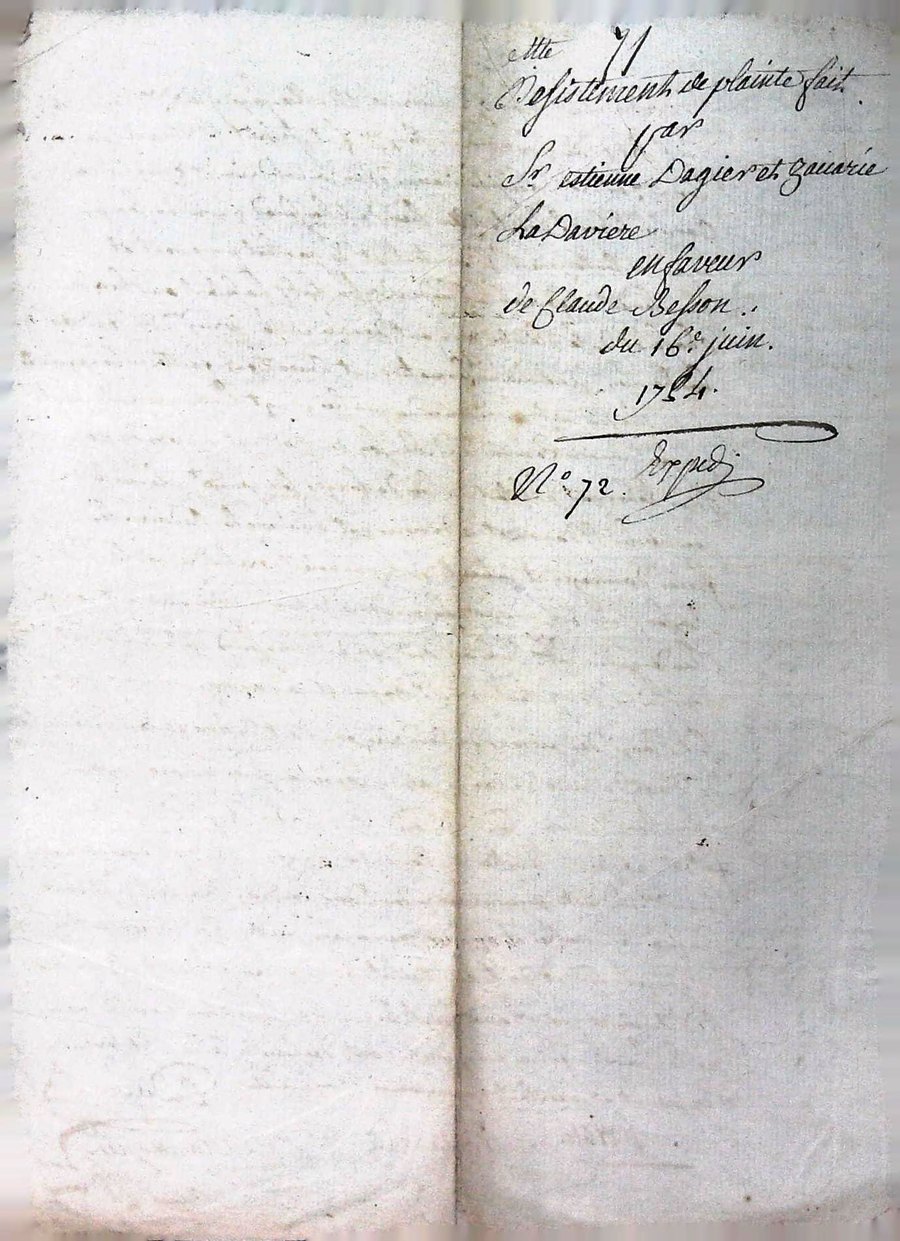 71
Desistement de plainte fait
par
Sr. estienne Dagier et Zacarie
La Daviere
en faveur
de Claude Besson.
du 16e. juin.
1754.
Expedj
No. 72.